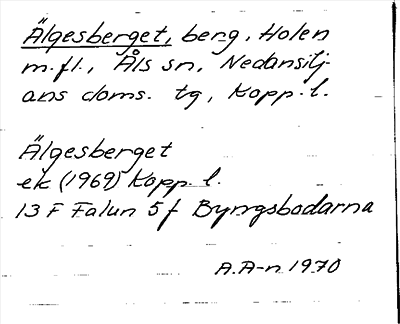 Älgesberget, berg, Holen
m.fl., Åls sn, Nedansilj-
ans doms. tg, Kopp. l.
Älgesberget
ek (1969) Kopp. l.
13 F Falun 5 f Byngsbodarna
A.A-n 1970